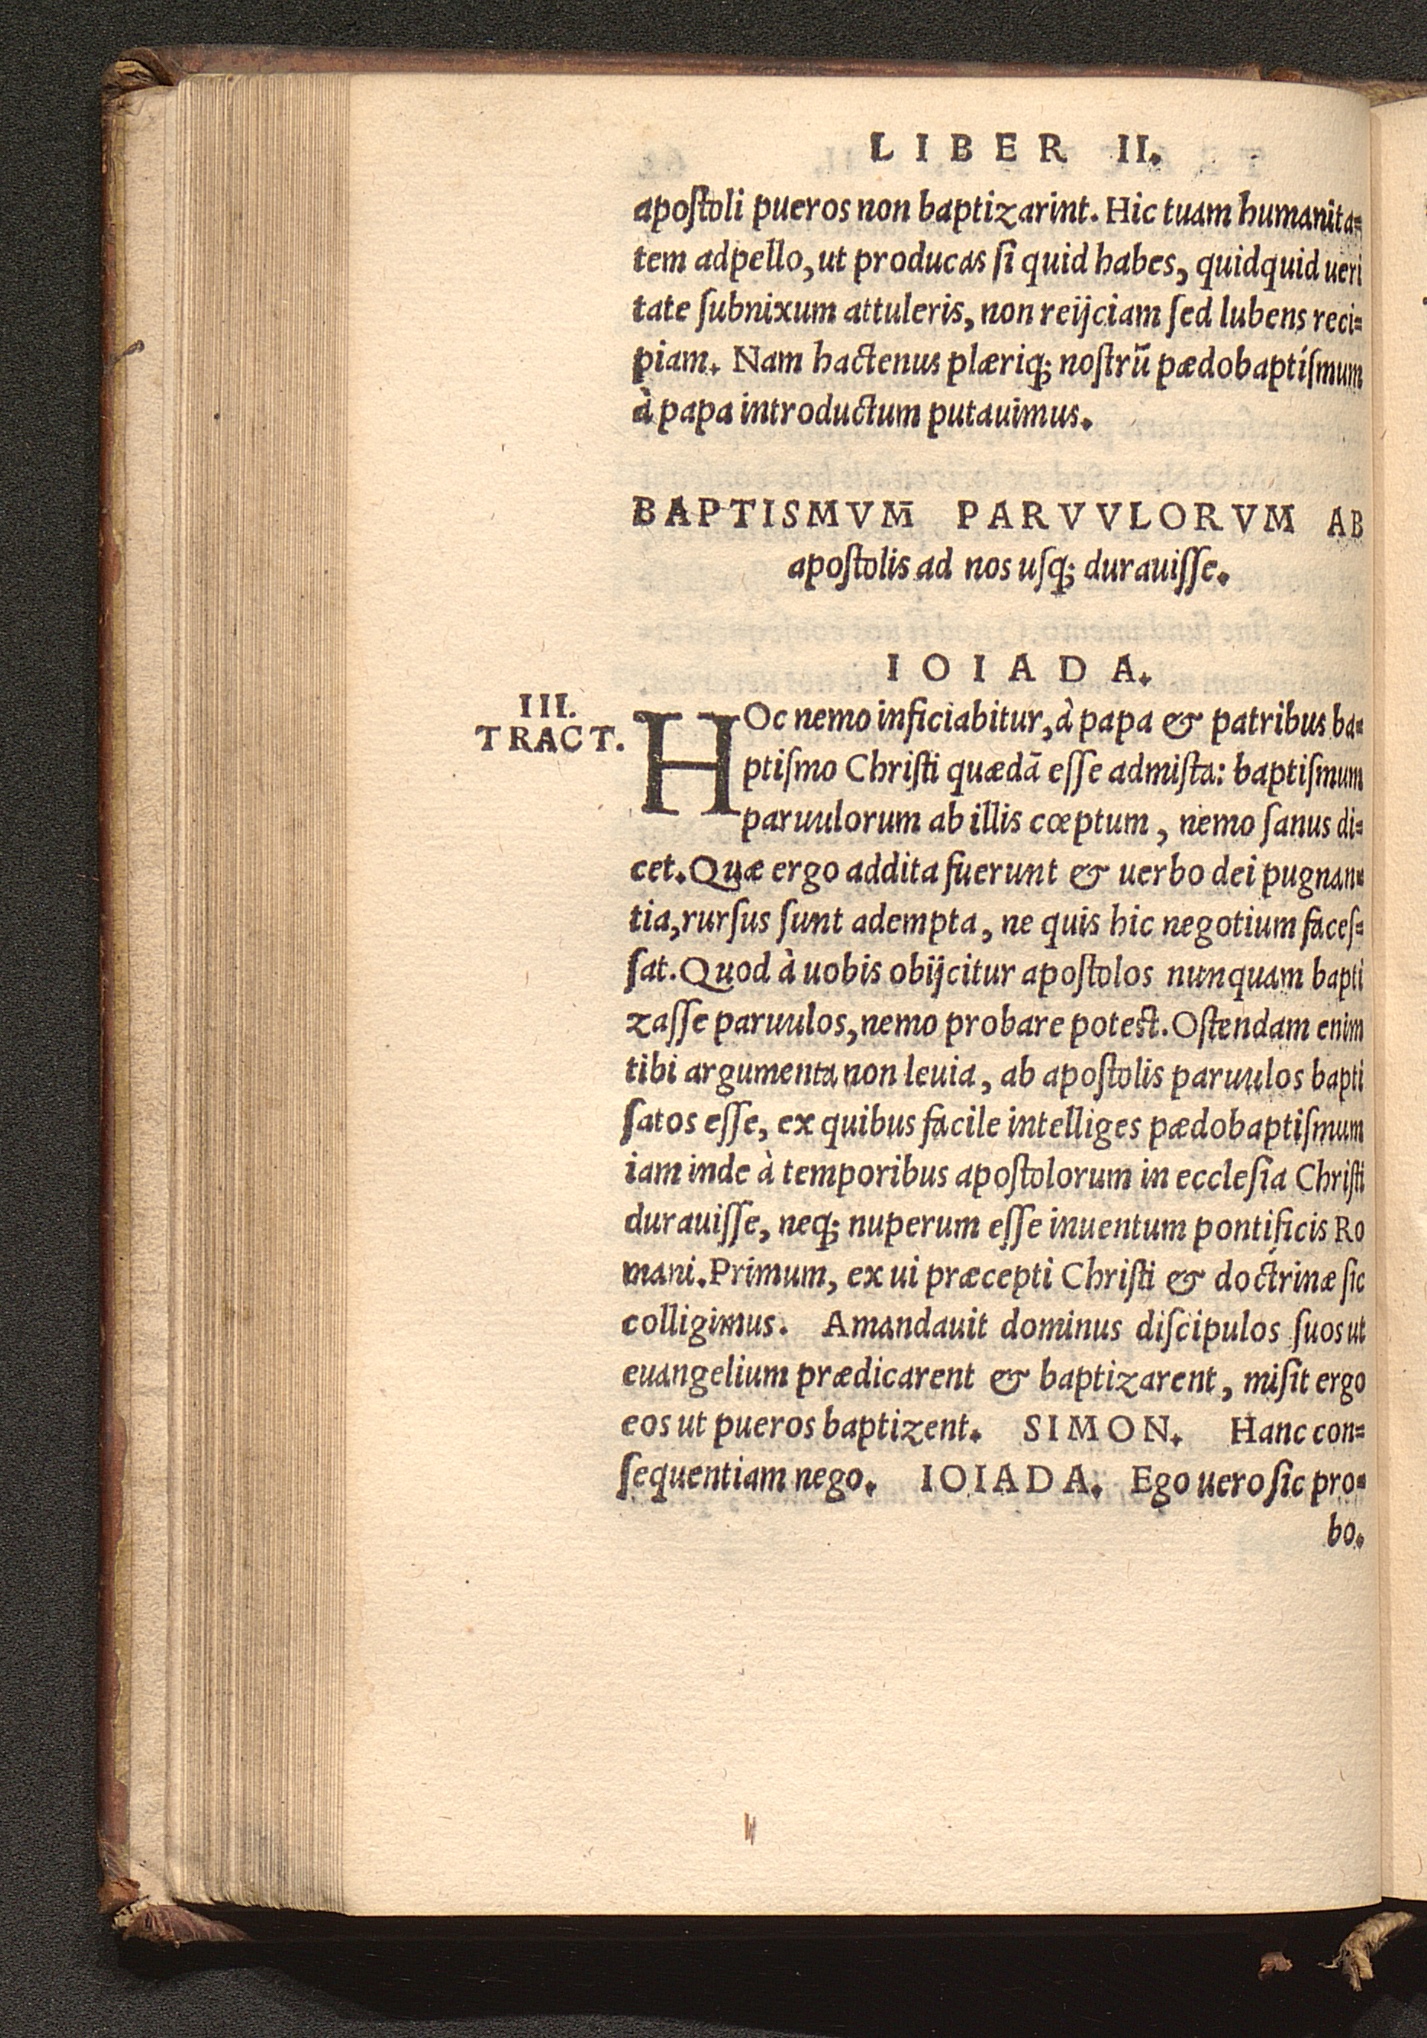 LIBER II.
apostoli pueros non baptizarint. Hic tuam humanita=
tem adpello, ut producas si quid habes, quidquid ueri
tate subnixum attuleris, non reijciam sed lubens reci=
piam. Nam hactenus plæriq; nostrū pædobaptismum
à papa introductum putauimus.
BAPTISMVM̄ PARVVLORVM AB
apostolis ad nos usq; durauisse.
IOIADA.
III.
TRACT.
HOc nemo inficiabitur, à papa & patribus ba=
ptismo Christi quædā esse admista: baptismum
paruulorum ab illis cœptum, nemo sanus di=
cet. Quæ ergo addita fuerunt & uerbo dei pugnan=
tia, rursus sunt adempta, ne quis hic negotium faces=
sat. Quod à uobis obijcitur apostolos nunquam bapti
zasse paruulos, nemo probare potest. Ostendam enim
tibi argumenta non leuia, ab apostolis paruulos bapti
satos esse, ex quibus facile intelliges pædobaptismum
iam inde à temporibus apostolorum in ecclesia Christi
durauisse, neq; nuperum esse inuentum pontificis Ro
mani. Primum, ex ui præcepti Christi & doctrinæ sic
colligimus. Amandauit dominus discipulos suos ut
euangelium prædicarent & baptizarent, misit ergo
eos ut pueros baptizent. SIMON. Hanc con=
sequentiam nego. IOIADA. Ego uero sic pro=
bo.